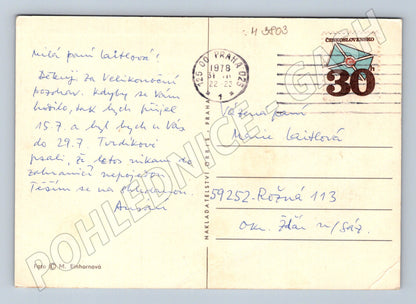 4 3803
ČESKOSLOVENSKO
30
125 00 PRAHA 025
1978
22-23
1
Milá paní Laitlová!
Děkuji za velikonoční
pozdrav. Kdyby se Vám
hodilo, tak bych přijel
15.7. a byl bych u Vás
do 29.7. Tvrdíkovi
psali, že letos nikam do
zahraničí nepojedou.
Těším se na shledanou.
Vážená paní
Marie Laitlová
59252-Rožná 113
okr. Žďár n/Sáz.
NAKLADATELSTVÍ ORBIS, PRAHA
Foto © M. Einhornová
POHLEDNICE - GASH